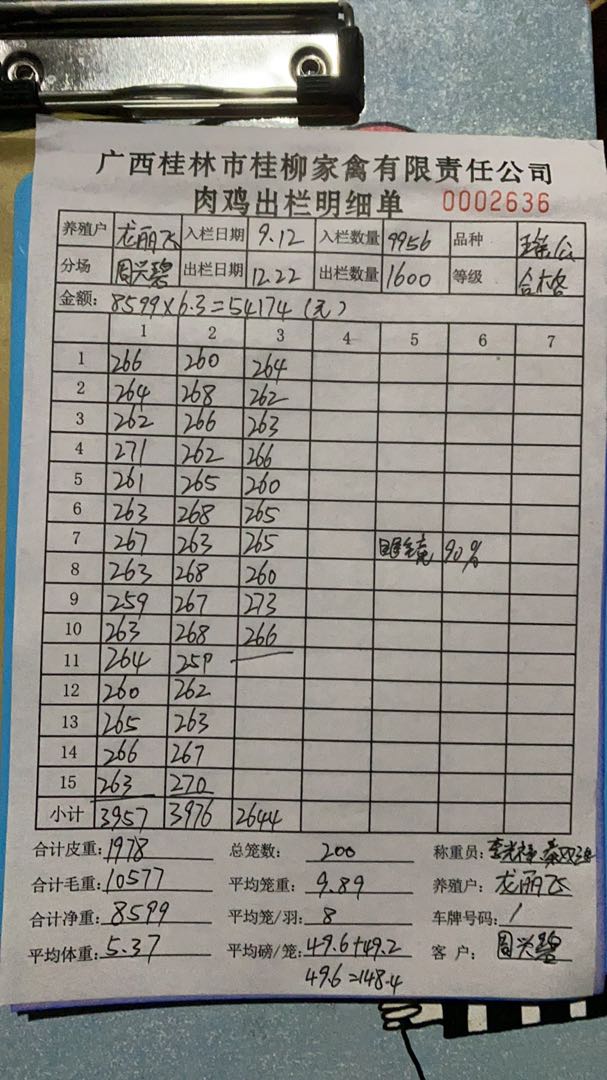 广西桂林市桂柳家禽有限责任公司
肉鸡出栏明细单 0002636
养殖户 龙丽飞 入栏日期 9.12 入栏数量 9956 品种 瑶公
分场 周兴碧 出栏日期 12.22 出栏数量 1600 等级 合格
金额: 8599×6.3=54174(元)
1 2 3 4 5 6 7
1 266 260 264
2 264 268 262
3 262 266 263
4 271 262 266
5 261 265 260
6 263 268 265
7 267 263 265 眼镜 90%
8 263 268 260
9 259 267 273
10 263 268 266
11 264 259
12 260 262
13 265 263
14 266 267
15 263 270
小计 3957 3976 2644
合计皮重: 1978 总笼数: 200 称重员:
合计毛重: 10577 平均笼重: 9.89 养殖户: 龙丽飞
合计净重: 8599 平均笼/羽: 8 车牌号码: /
平均体重: 5.37 平均磅/笼: 49.6+49.2 客户: 周兴碧
49.6=148.4